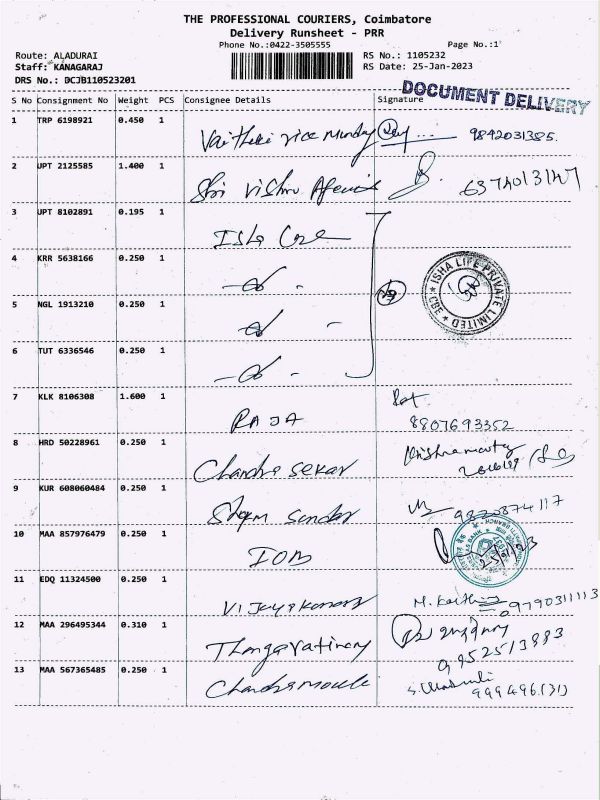 THE PROFESSIONAL COURIERS, Coimbatore
Delivery Runsheet - PRR
Phone No.:0422-3505555
Page No.:1
Route: ALADURAI
RS No.: 1105232
Staff: KANAGARAJ
RS Date: 25-Jan-2023
DRS No.: DCJB110523201
DOCUMENT DELIVERY
S No Consignment No Weight PCS Consignee Details Signature
1 TRP 6198921 0.450 1 9842031385
2 JPT 2125585 1.400 1 Sri Vishnu
3 JPT 8102891 0.195 1 Isha
4 KRR 5638166 0.250 1
ISHA LIFE PRIVATE LIMITED
CBE
5 NGL 1913210 0.250 1
6 TUT 6336546 0.250 1
7 KLK 8106308 1.600 1 RAJA
8807693352
8 HRD 50228961 0.250 1 Chandra sekar
9 KUR 608060484 0.250 1 Sham sundar 9820874117
10 MAA 857976479 0.250 1 IOB
11 EDQ 11324500 0.250 1 09790311113
12 MAA 296495344 0.310 1
13 MAA 567365485 0.250 1 Chandramouli